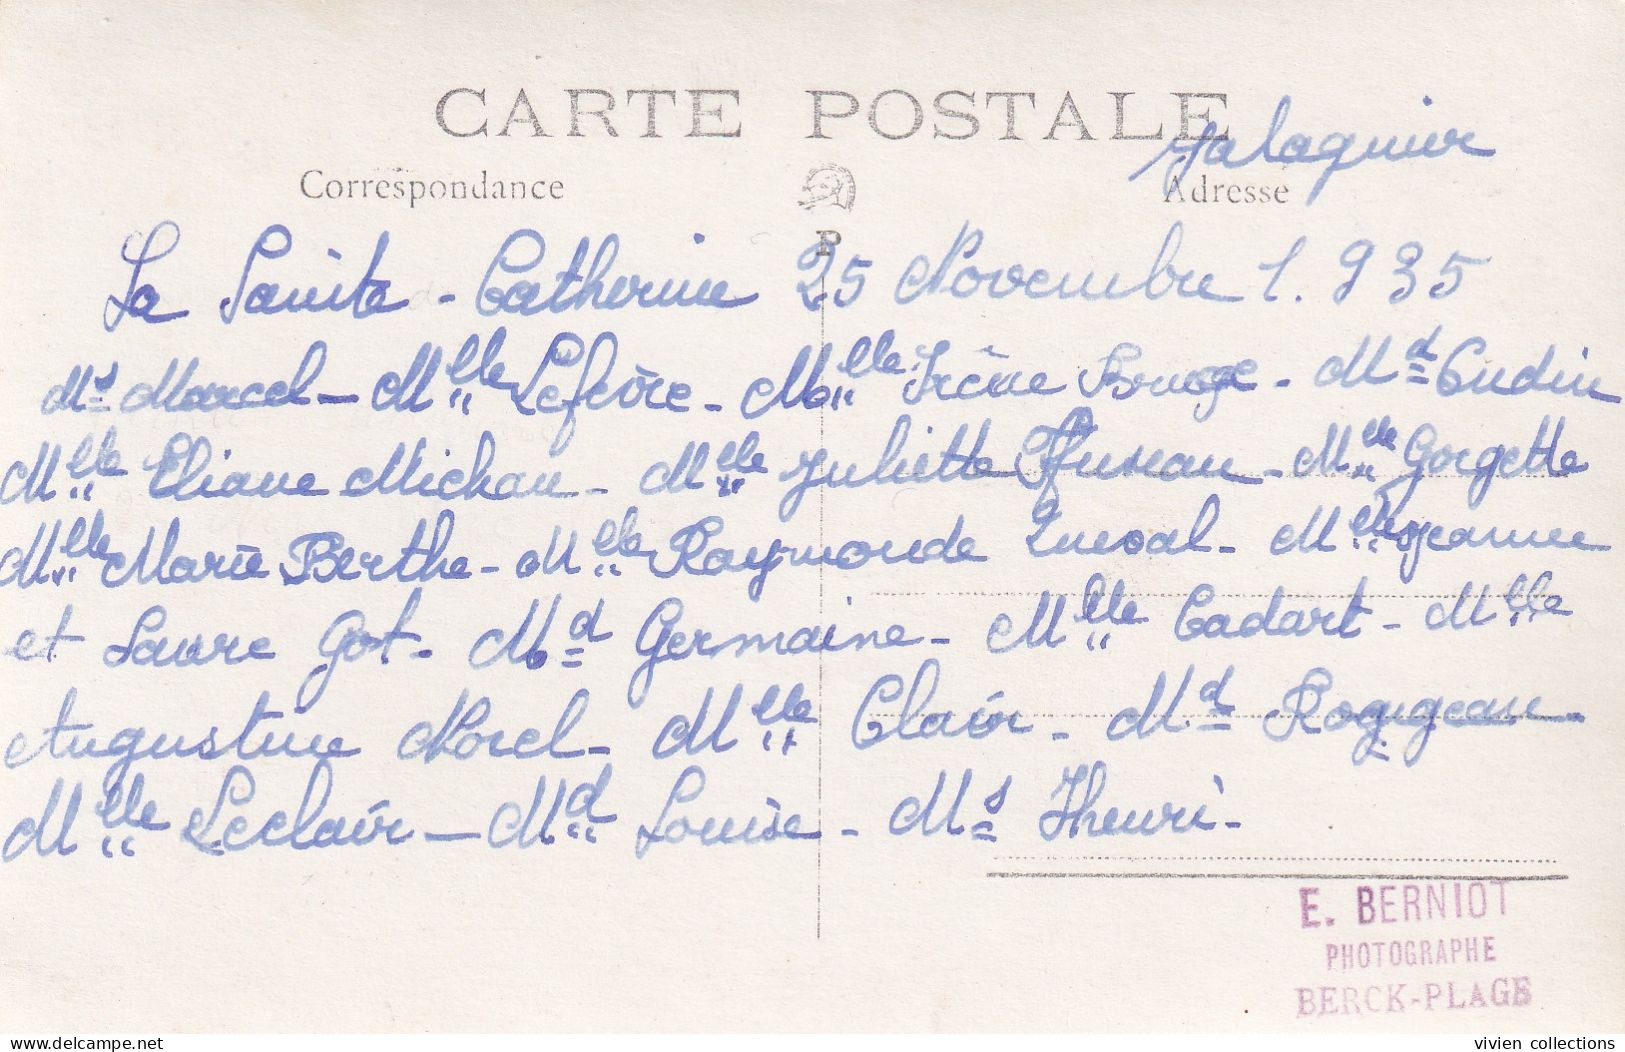 CARTE POSTALE
Jalaquier
Correspondance
Adresse
P
La Sainte - Catherine 25 Novembre 1.935
Ms Marcel - Mlle Lefèvre - Mlle Irène Bruge - Md Gudin
Mlle Eliane Michau - Mlle Juliette - Mlle Gorgette
Mlle Marie Berthe - Mlle Raymonde Queval - Mlles Jeanne
et Laure Got - Md Germaine - Mlle Cadart - Mlle
Augustine Morel - Mlle Clair - Md Rogegeau -
Mlle Leclair - Md Louise - Ms Henri -
E. BERNIOT
PHOTOGRAPHE
BERCK-PLAGE
delcampe.net
vivien collections